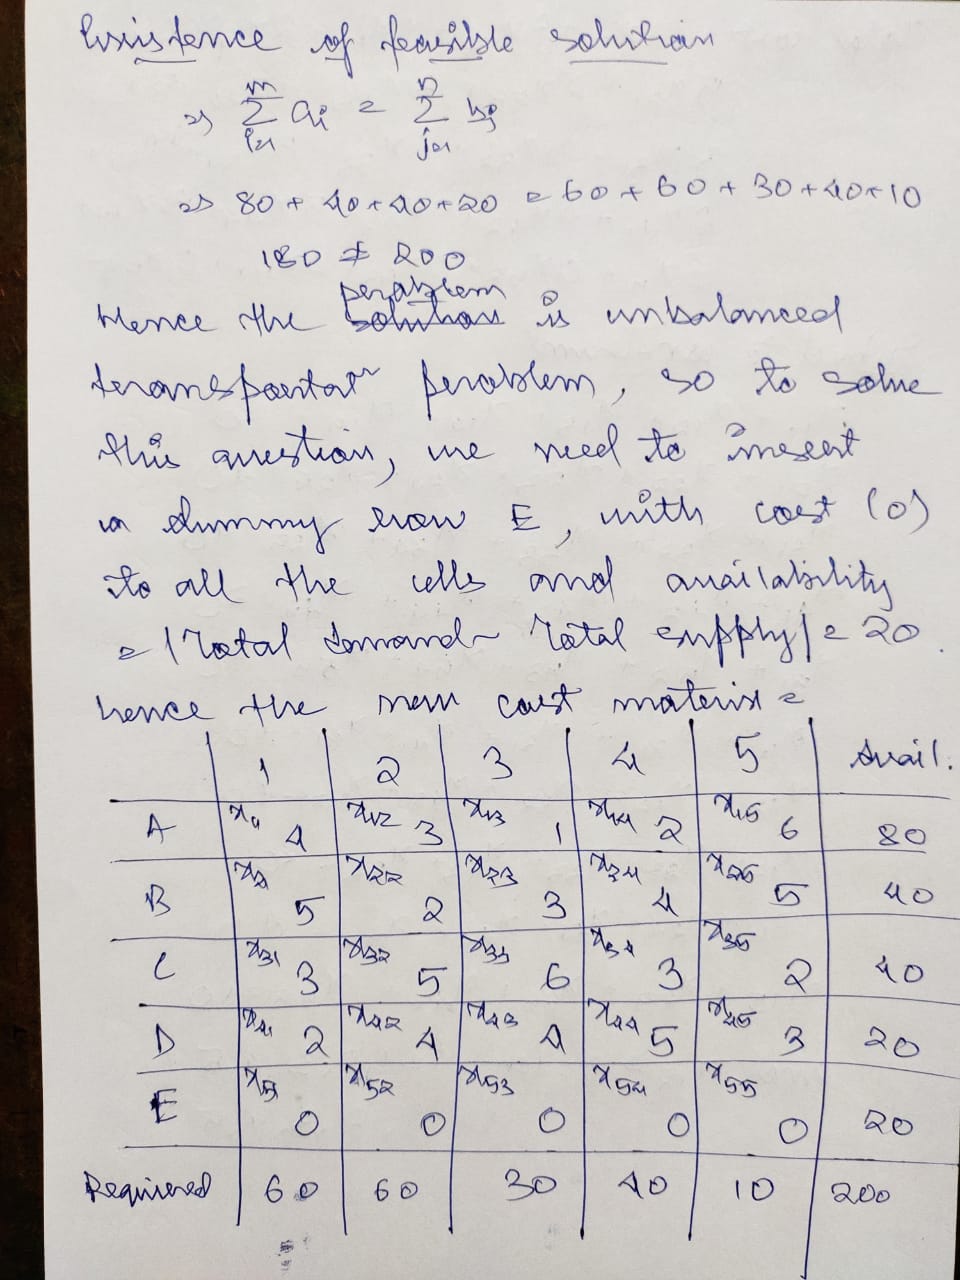 Existence of feasible solution
=> m Σ i=1 ai = n Σ j=1 bj
=> 80 + 40 + 40 + 20 = 60 + 60 + 30 + 40 + 10
180 ≠ 200
problem
Hence the solution is unbalanced
transportatn problem, so to solve
this question, we need to insert
a dummy row E, with cost (0)
to all the cells and availability
= |Total demand - Total supply| = 20.
hence the new cost matrix =
1 2 3 4 5 Avail.
A x11 4 x12 3 x13 1 x14 2 x15 6 80
B x21 5 x22 2 x23 3 x24 4 x25 5 40
C x31 3 x32 5 x33 6 x34 3 x35 2 40
D x41 2 x42 4 x43 4 x44 5 x45 3 20
E x51 0 x52 0 x53 0 x54 0 x55 0 20
Required 60 60 30 40 10 200